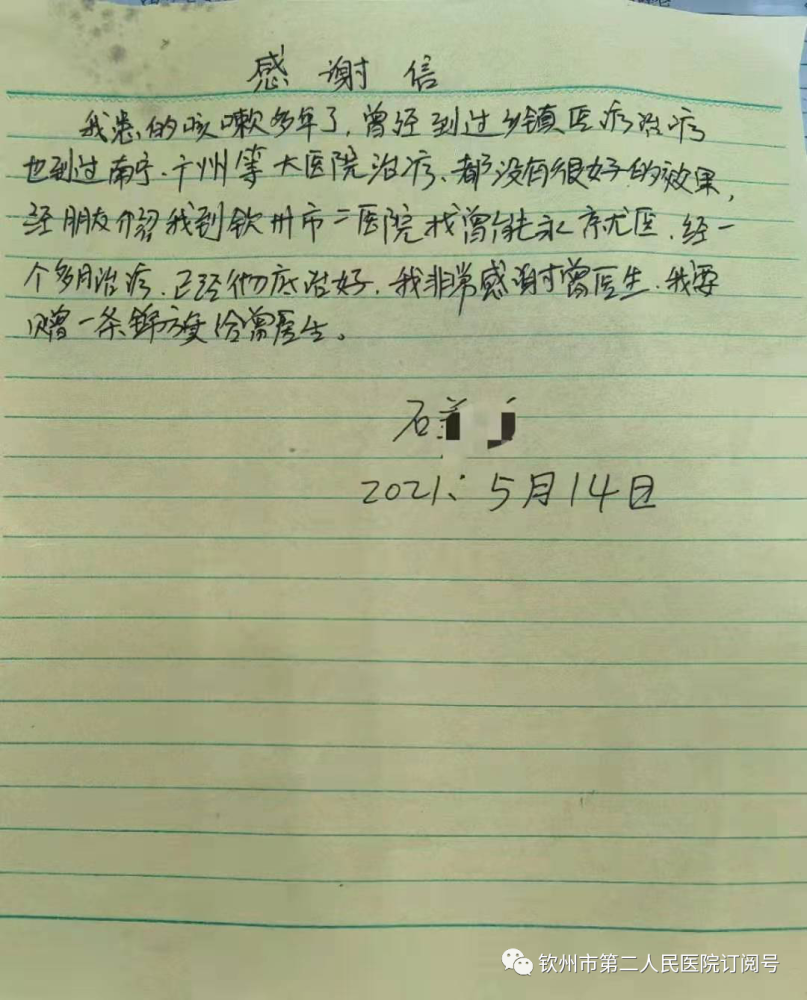 感谢信
我患的咳嗽多年了，曾经到过乡镇医疗治疗
也到过南宁、广州等大医院治疗、都没有很好的效果，
经朋友介绍我到钦州市二医院找曾能永就医、经一
个多月治疗、已经彻底治好，我非常感谢曾医生、我要
赠一条锦旗给曾医生。
石
2021、5月14日
钦州市第二人民医院订阅号